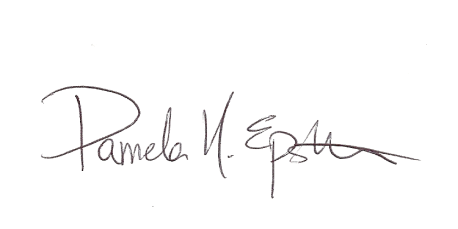 Pamela N. Epstein